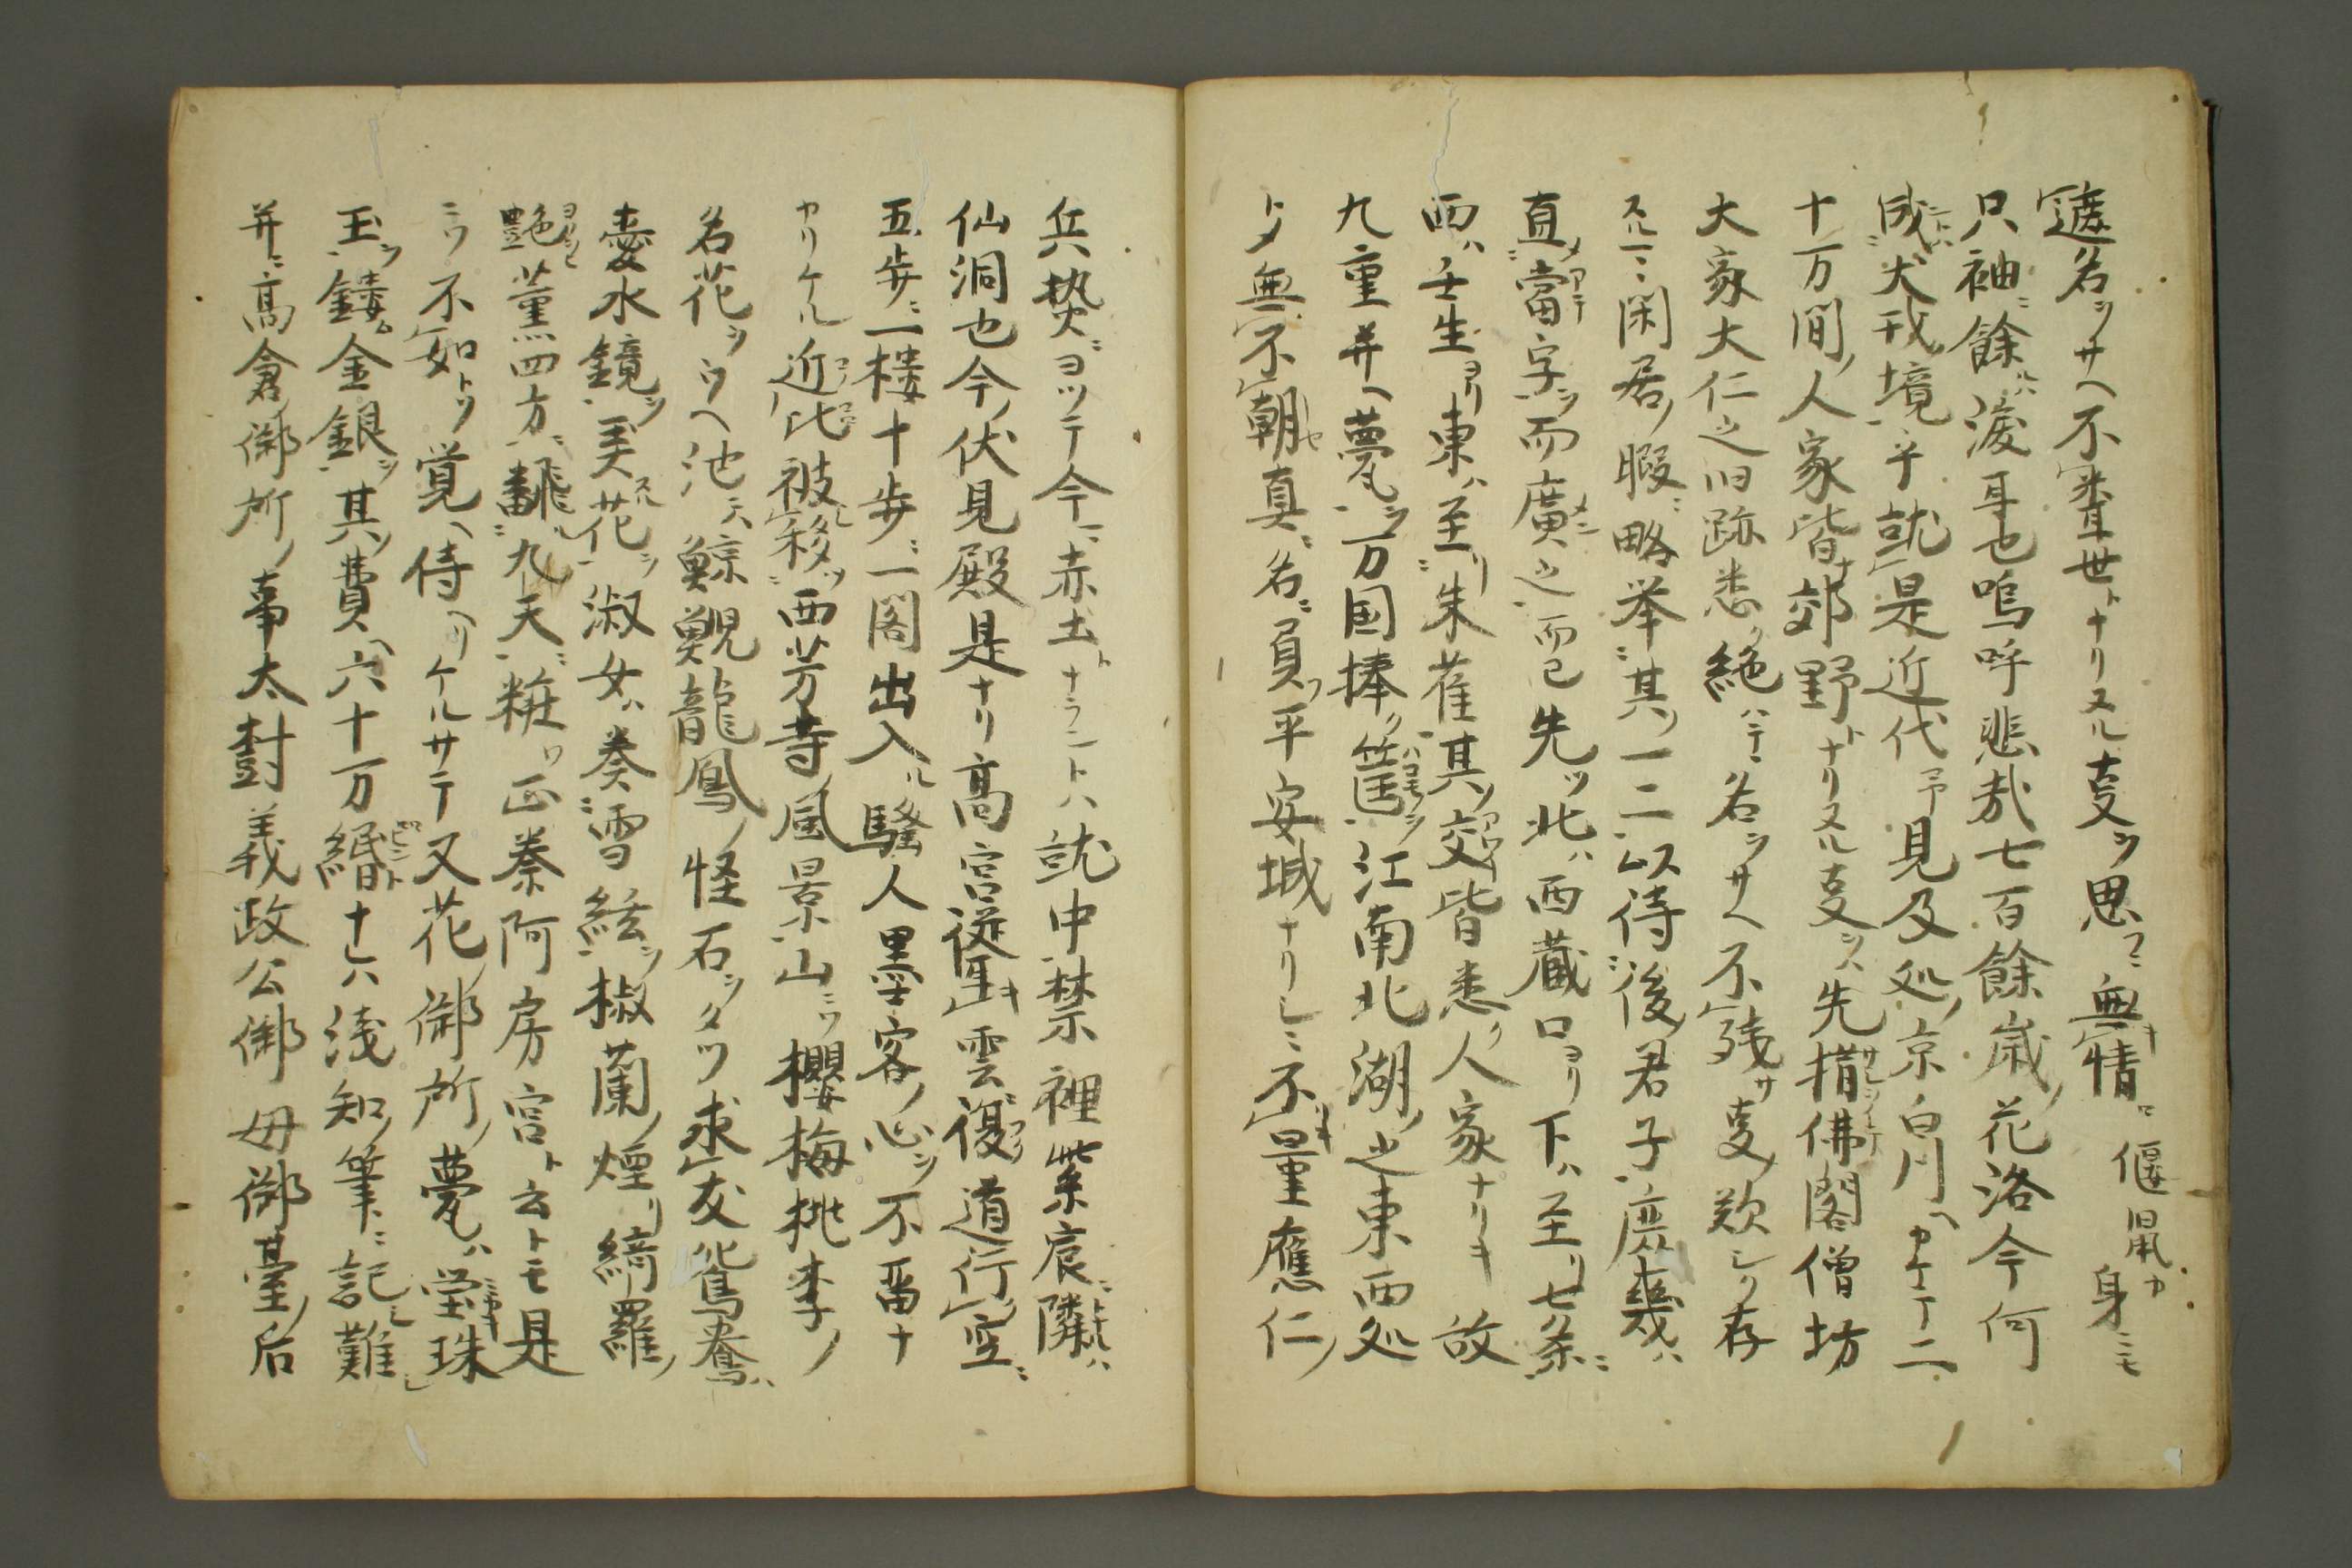 遮名ヲサヘ不審世トナリヌル支ヲ思フニ無情偃鼠カ身ニモ
只袖ニ餘ル涙耳也嗚呼悲哉七百餘歳ノ花洛今何
成ニ犬戎境ニ乎就是近代予見及処ノ京白川ヘカケテ二
十万間ノ人家皆郊野トナリヌル支ヲハ先措佛閣僧坊
大家大仁之旧跡悉ク絶ハテニ名ヲサヘ不残サ支ノ歎シク存
スルニ閑居ノ暇ニ略挙其ノ一二ヲ以待後ノ君子ヲ庶幾ハ
直ニ當字ヲ而廣メニ之而已先ツ北ハ西蔵口ヨリ下ハ至リ七条ニ
西ハ壬生ヨリ東ハ至リ朱雀ニ其ノ交皆悉ク人家ナリキ故
九重并ヘ甍ヲ万国捧ク筐ヲ江南北湖ノ之東西処
トメ無不朝真ニ名ニ負フ平安城ナリシニ不量應仁ノ
兵𠩤ニヨツテ今ニ赤土トナラントハ就中禁裡紫宸ニ隣ハ
仙洞也今ノ伏見殿是ナリ高宮聳雲ニ複道行空ニ
五歩ニ一樓十歩ニ一閣出入ル騒人墨客ノ心ヲ不畱ナ
カリケル近比被移ヲ西芳寺ノ風景ヲ山ニツ櫻梅桃李ノ
名花ヲウヘ池ニハ鯨鯢龍鳳ノ怪石ヲタツ求友鴛鴦ハ
愛水鏡ヲ美スル花ヲ淑女ハ奏雪絃ヲ椒蘭ノ煙リ綺羅ノ
艶薫四方ニ飜ル九天ニ粧ヒ正秦阿房宮ト云トモ是
ニツ不如トソ覚ヘ侍ヘリケルサテ又花ノ御所ノ甍ハ瑩珠
玉ヲ鏤ム金銀ヲ其ノ費ヘ六十万緡ト十レハ浅知ノ筆ニ記シ難シ
并ニ髙倉ノ御所ノ事太樹義政公御母御臺ノ后